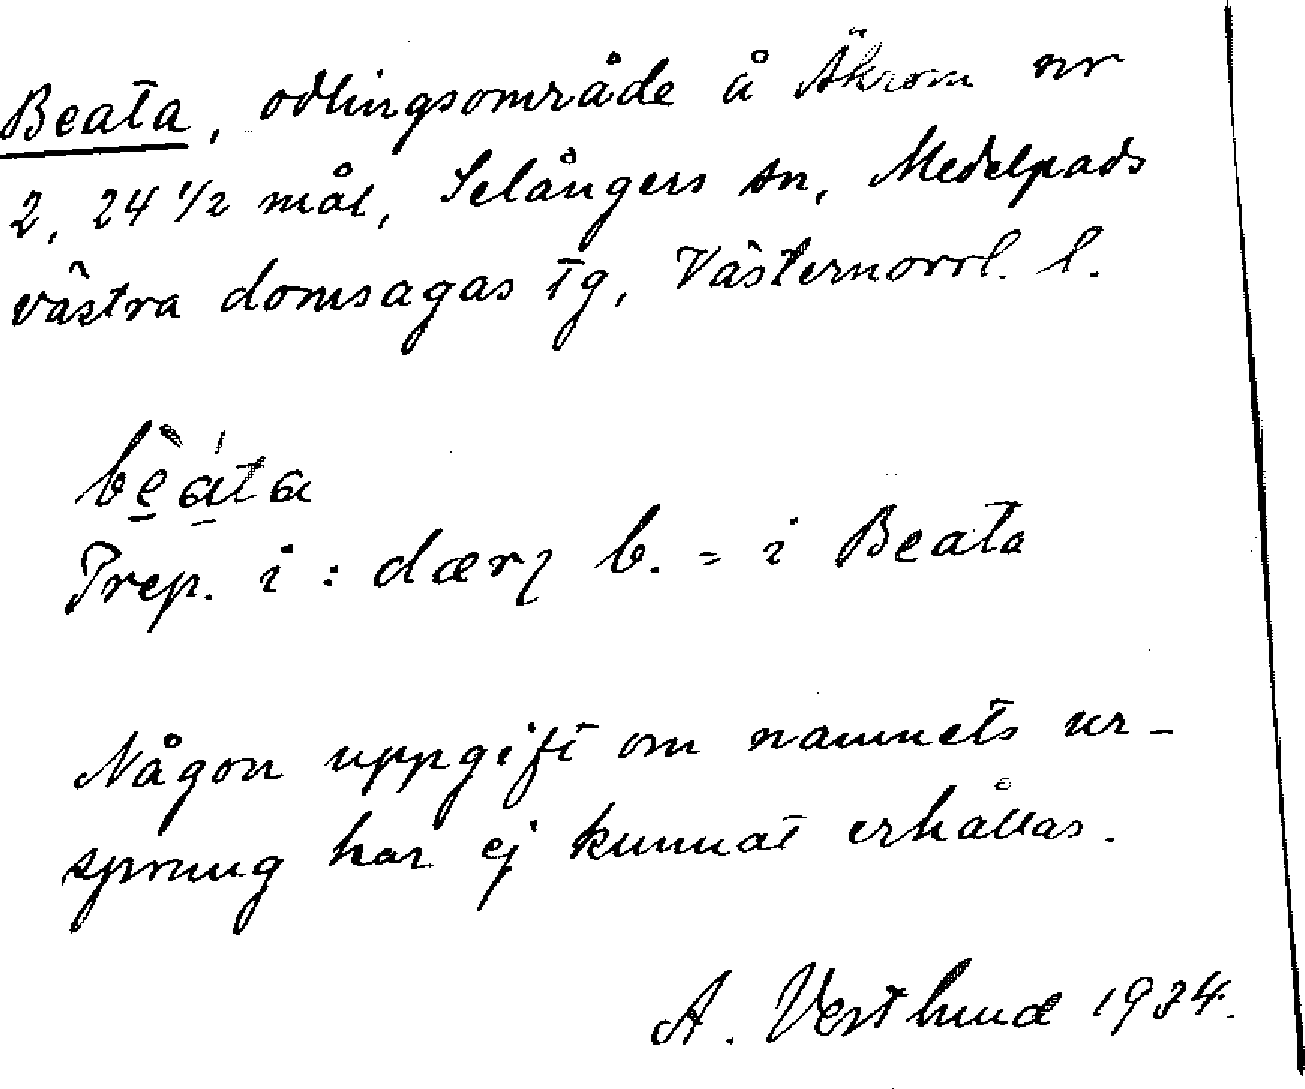 Beata, odlingsområde å Äkrom nr
2, 24 1/2 mål, Selångers sn, Medelpads
västra domsagas tg, Västernorrl. l.
beata
Prep. i : dærɩ b. = i Beata
Någon uppgift om namnets ur-
sprung har ej kunnat erhållas.
A. Vestlund 1934.